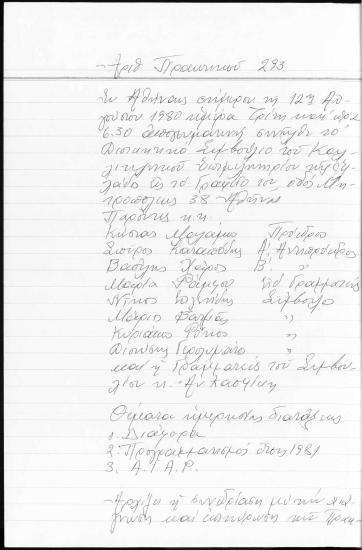 - Αριθ Πρακτικού 293
Εν Αθήναις σήμερον τη 12η Αυ-
γούστου 1980 ημέρα Τρίτη και ώρα
6.30 απογευματινή συνήλθε το
Διοικητικό Συμβούλιο του Καλ-
λιτεχνικού Επιμελητηρίου της Ελ-
λάδο εις το Γραφείο του οδός Μη-
τροπόλεως 38 - Αθήναι
Παρόντες κ.κ.
Κώστας Πρόεδρος
Σπύρος Α΄. Αντιπρόεδρος
Βασίλης Χάρος Β΄. "
Μαρία Γραμματεύς
Νίκος Σύμβουλο
Μάριος "
Κυριάκος "
Διονύσης Γερολυμάτο "
και η Γραμματεύς του Συμβου-
λίου κ.
Θέματα ημερησίας διατάξεως
1. Διάφορα
2. Προγραμματισμός έτους 1981
3. A.I.A.P.
- Αρχίζει η συνεδρίαση με την ανά-
γνωση και επικύρωση των Πρακ-